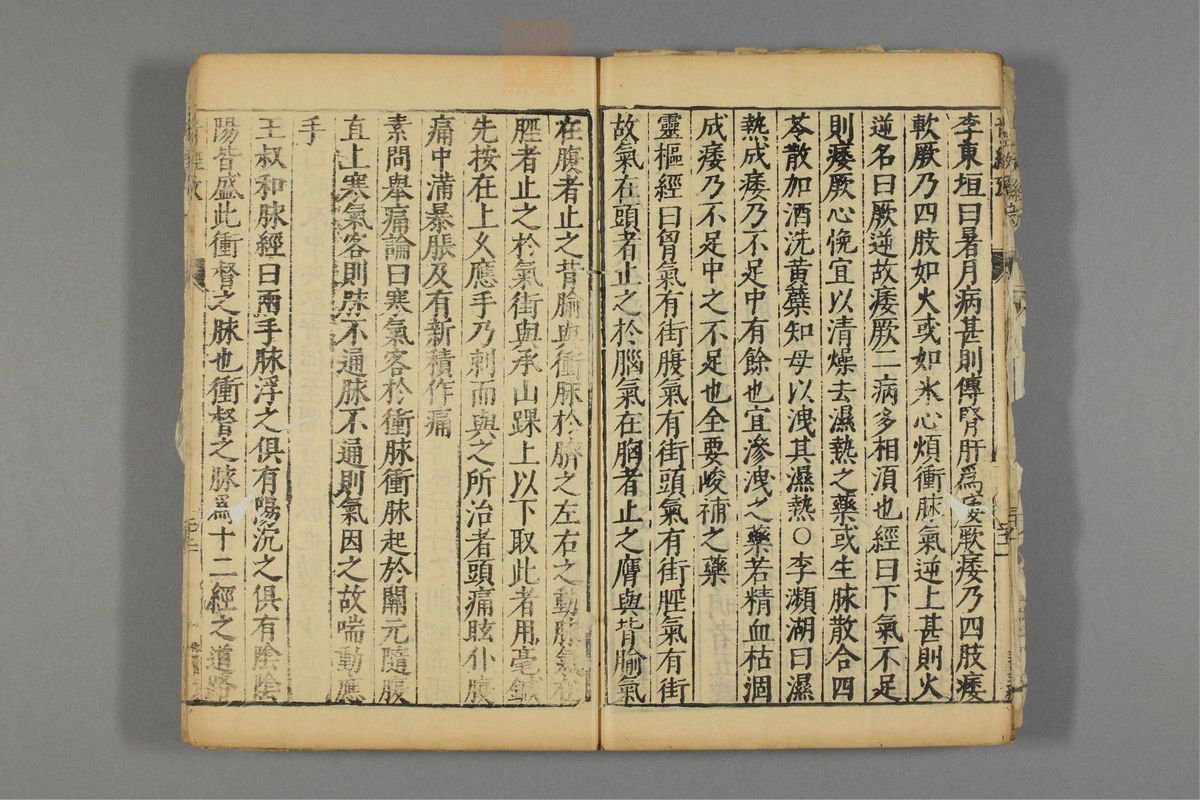 李東垣曰暑月病甚則傳腎肝為痿厥痿乃四肢痿
軟厥乃四肢如火或如氷心煩衝脉氣逆上甚則火
逆名曰厥逆故痿厥二病多相須也經曰下氣不足
則痿厥心悗宜以清燥去濕熱之藥或生脉散合四
苓散加酒洗黃蘗知母以洩其濕熱○李瀕湖曰濕
熱成痿乃不足中有餘也宜滲洩之藥若精血枯涸
成痿乃不足中之不足也全要峻補之藥
靈樞經曰胷氣有街腹氣有街頭氣有街脛氣有街
故氣在頭者止之於腦氣在胸者止之膺與背腧氣
在腹者止之背腧與衝脉於臍之左右之動脉氣在
脛者止之於氣街與承山踝上以下取此者用毫鍼
先按在上乆應手乃刺而與之所治者頭痛眩仆腹
痛中滿暴脹及有新積作痛
素問舉痛論曰寒氣客於衝脉衝脉起於關元隨腹
直上寒氣客則脉不通脉不通則氣因之故喘動應
手
王叔和脉經曰兩手脉浮之俱有陽沉之俱有陰陰
陽皆盛此衝督之脉也衝督之脉為十二經之道路